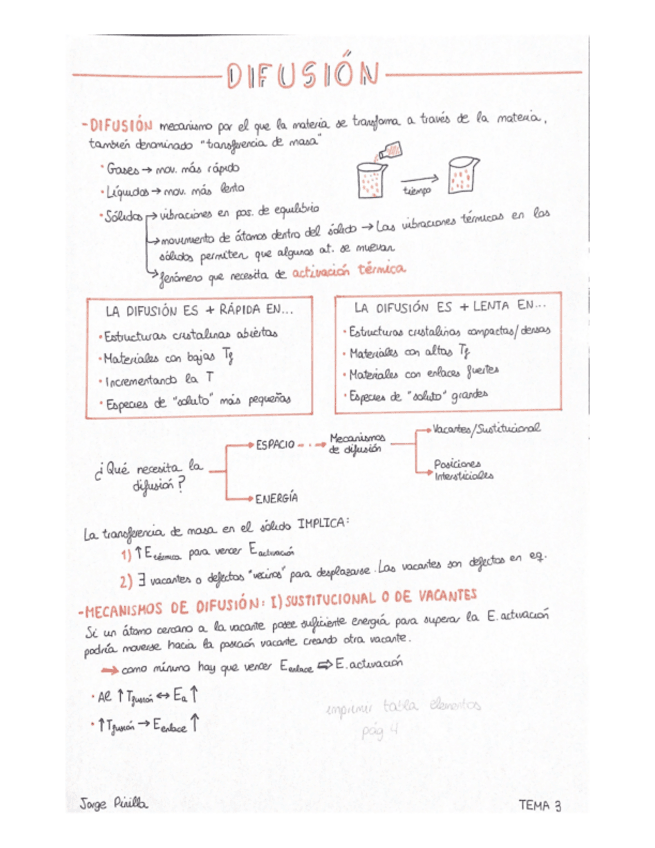 DIFUSIÓN
-DIFUSIÓN mecanismo por el que la materia se transforma a través de la materia,
también denominado "transferencia de masa"
· Gases → mov. más rápido
· Líquidos → mov. más lento
tiempo
· Sólidos → vibraciones en pos. de equilibrio
→ movimiento de átomos dentro del sólido → Las vibraciones térmicas en los
sólidos permiten que algunos at. se muevan
→ fenómeno que necesita de activación térmica
LA DIFUSIÓN ES + RÁPIDA EN...
· Estructuras cristalinas abiertas
· Materiales con bajas Tf
· Incrementando la T
· Especies de "soluto" más pequeñas
LA DIFUSIÓN ES + LENTA EN...
· Estructuras cristalinas compactas/densas
· Materiales con altas Tf
· Materiales con enlaces fuertes
· Especies de "soluto" grandes
¿Qué necesita la
difusión?
→ ESPACIO → Mecanismos
de difusión
→ Vacantes/Sustitucional
→ Posiciones
Intersticiales
→ ENERGÍA
La transferencia de masa en el sólido IMPLICA:
1) ↑ E térmica para vencer E activación
2) ∃ vacantes o defectos "vecinos" para desplazarse. Las vacantes son defectos en eq.
-MECANISMOS DE DIFUSIÓN: I) SUSTITUCIONAL O DE VACANTES
Si un átomo cercano a la vacante posee suficiente energía para superar la E. activación
podría moverse hacia la posición vacante creando otra vacante.
→ como mínimo hay que vencer E enlace ⇒ E. activación
· Al ↑ T fusión ↔ Ea ↑
· ↑ T fusión → E enlace ↑
imprimir tabla elementos
pág 4
Jorge Pinilla
TEMA 3